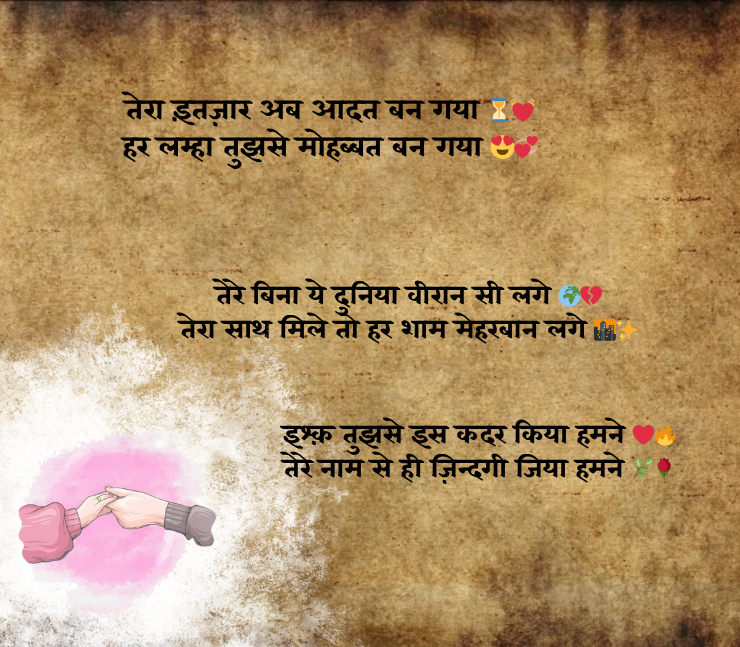 तेरा इंतज़ार अब आदत बन गया ⏳💓
हर लम्हा तुझसे मोहब्बत बन गया 😍💞
तेरे बिना ये दुनिया वीरान सी लगे 🌍💔
तेरा साथ मिले तो हर शाम मेहरबान लगे 🌆✨
इश्क़ तुझसे इस कदर किया हमने ❤️🔥
तेरे नाम से ही ज़िन्दगी जिया हमने 🌿🌹